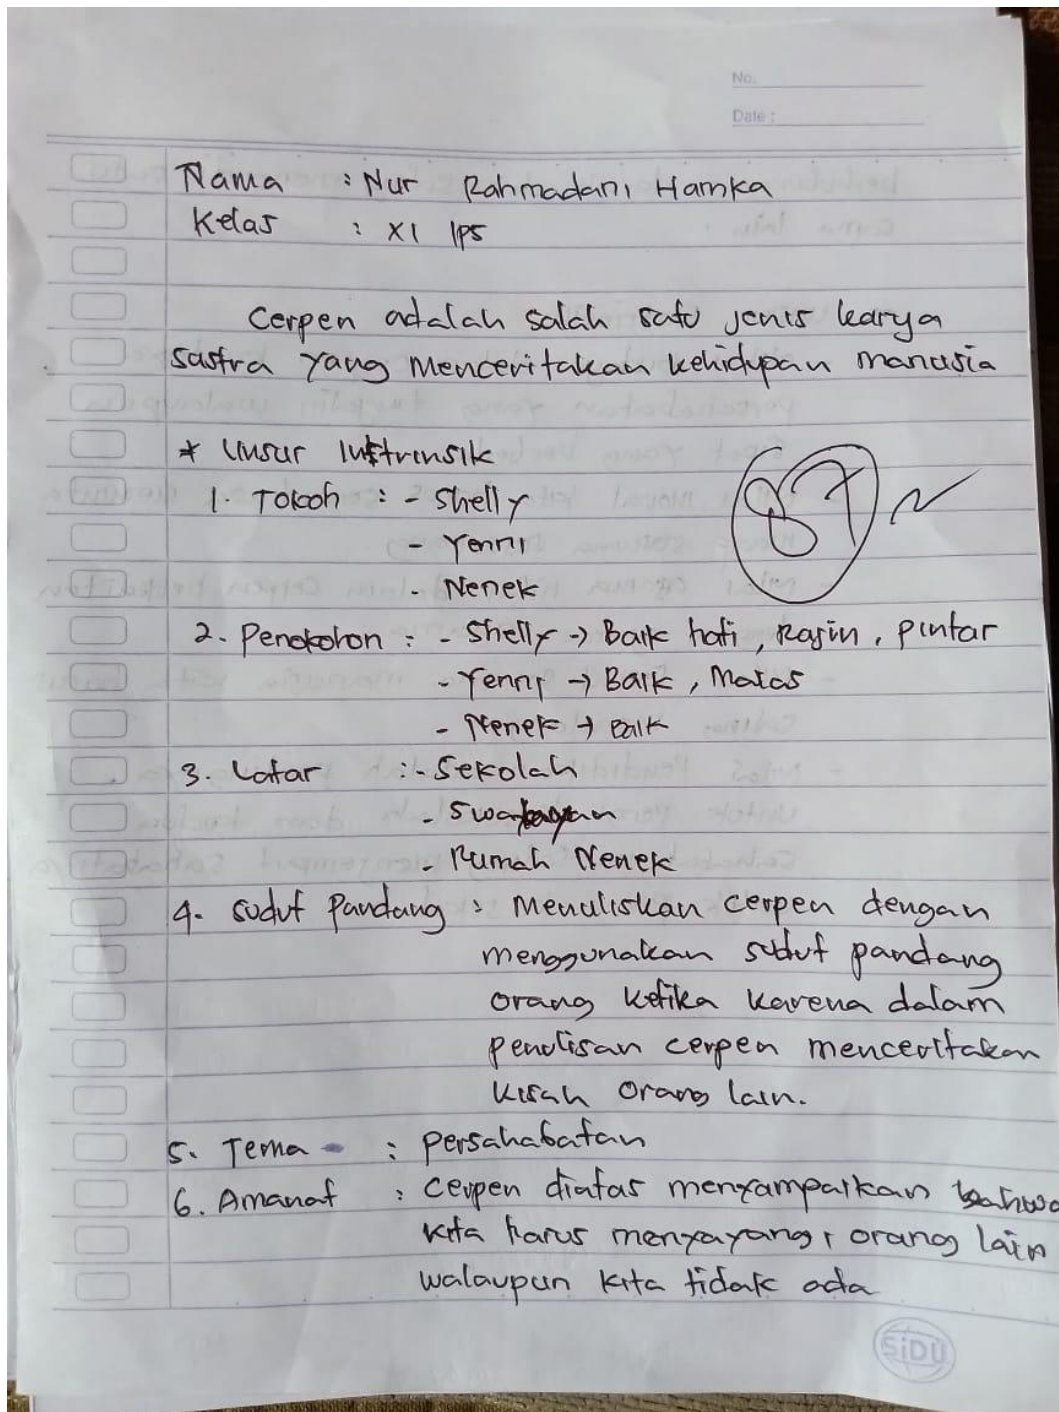 No.
Date :
Nama : Nur Rahmadani Hamka
Kelas : XI IPS
Cerpen adalah salah satu jenis karya
sastra yang menceritakan kehidupan manusia
* Unsur Instrinsik
1. Tokoh : - Shelly
- Yenni
- Nenek
87
2. Penokohon : - Shelly -> Baik hati, Rajin, pintar
- Yenni -> Baik, Malas
- Nenek -> Baik
3. Latar : - Sekolah
- Rumah Nenek
4. Sudut Pandang : Menuliskan cerpen dengan
menggunakan sudut pandang
orang ketika karena dalam
penulisan cerpen menceritakan
kisah orang lain.
5. Tema : persahabatan
6. Amanat : cerpen diatas menyampaikan bahwa
kita harus menyayangi orang lain
walaupun kita tidak ada
SiDU